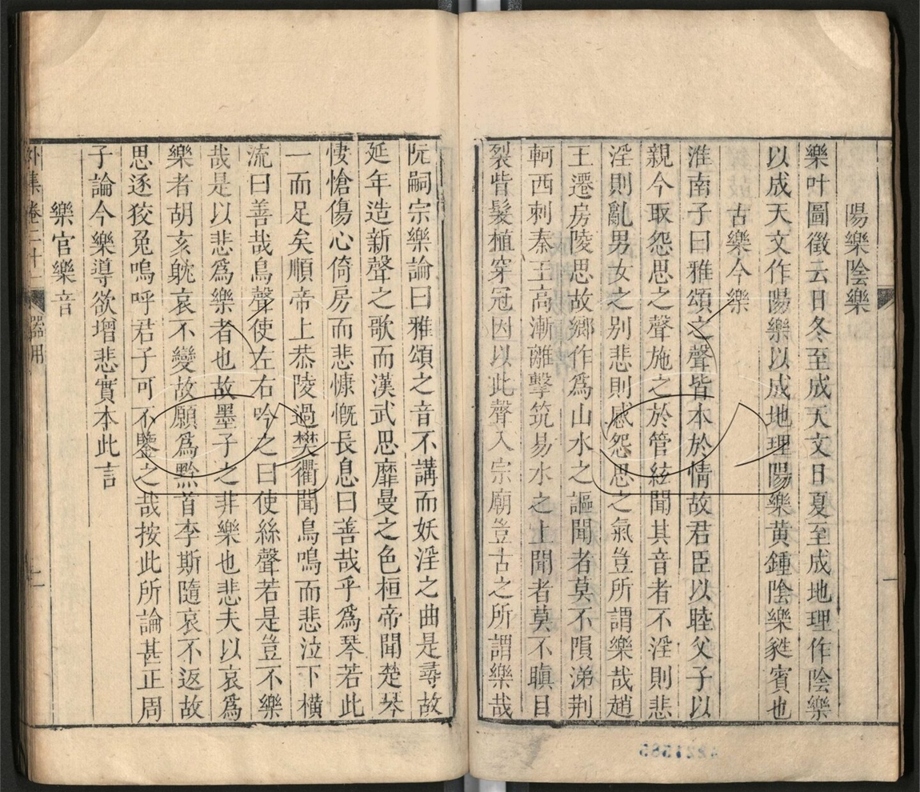 陽樂陰樂
樂叶圖徵云日冬至成天文日夏至成地理作陰樂
以成天文作陽樂以成地理陽樂黃鍾陰樂蕤賓也
古樂今樂
淮南子曰雅頌之聲皆本於情故君臣以睦父子以
親今取怨思之聲施之於管絃聞其音者不淫則悲
淫則亂男女之别悲則感怨思之氣豈所謂樂哉趙
王遷房陵思故鄉作爲山水之謳聞者莫不隕涕荆
軻西刺秦王高漸離擊筑易水之上聞者莫不瞋目
裂眥髮植穿冠因以此聲入宗廟豈古之所謂樂哉
阮嗣宗樂論曰雅頌之音不講而妖淫之曲是尋故
延年造新聲之歌而漢武思靡曼之色桓帝聞楚琴
悽愴傷心倚房而悲慷慨長息曰善哉乎爲琴若此
一而足矣順帝上恭陵過樊衢聞鳥鳴而悲泣下横
流曰善哉鳥聲使左右吟之曰使絲聲若是豈不樂
哉是以悲爲樂者也故墨子之非樂也悲夫以哀爲
樂者胡亥耽哀不變故願爲黔首李斯隨哀不返故
思逐狡兔嗚呼君子可不鑒之哉按此所論甚正周
子論今樂導欲增悲實本此言
樂官樂音
外集 卷二十二 器用
4221585